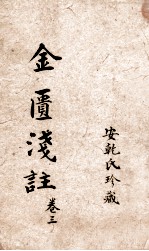 金匱淺註
卷三
安乾氏珍藏